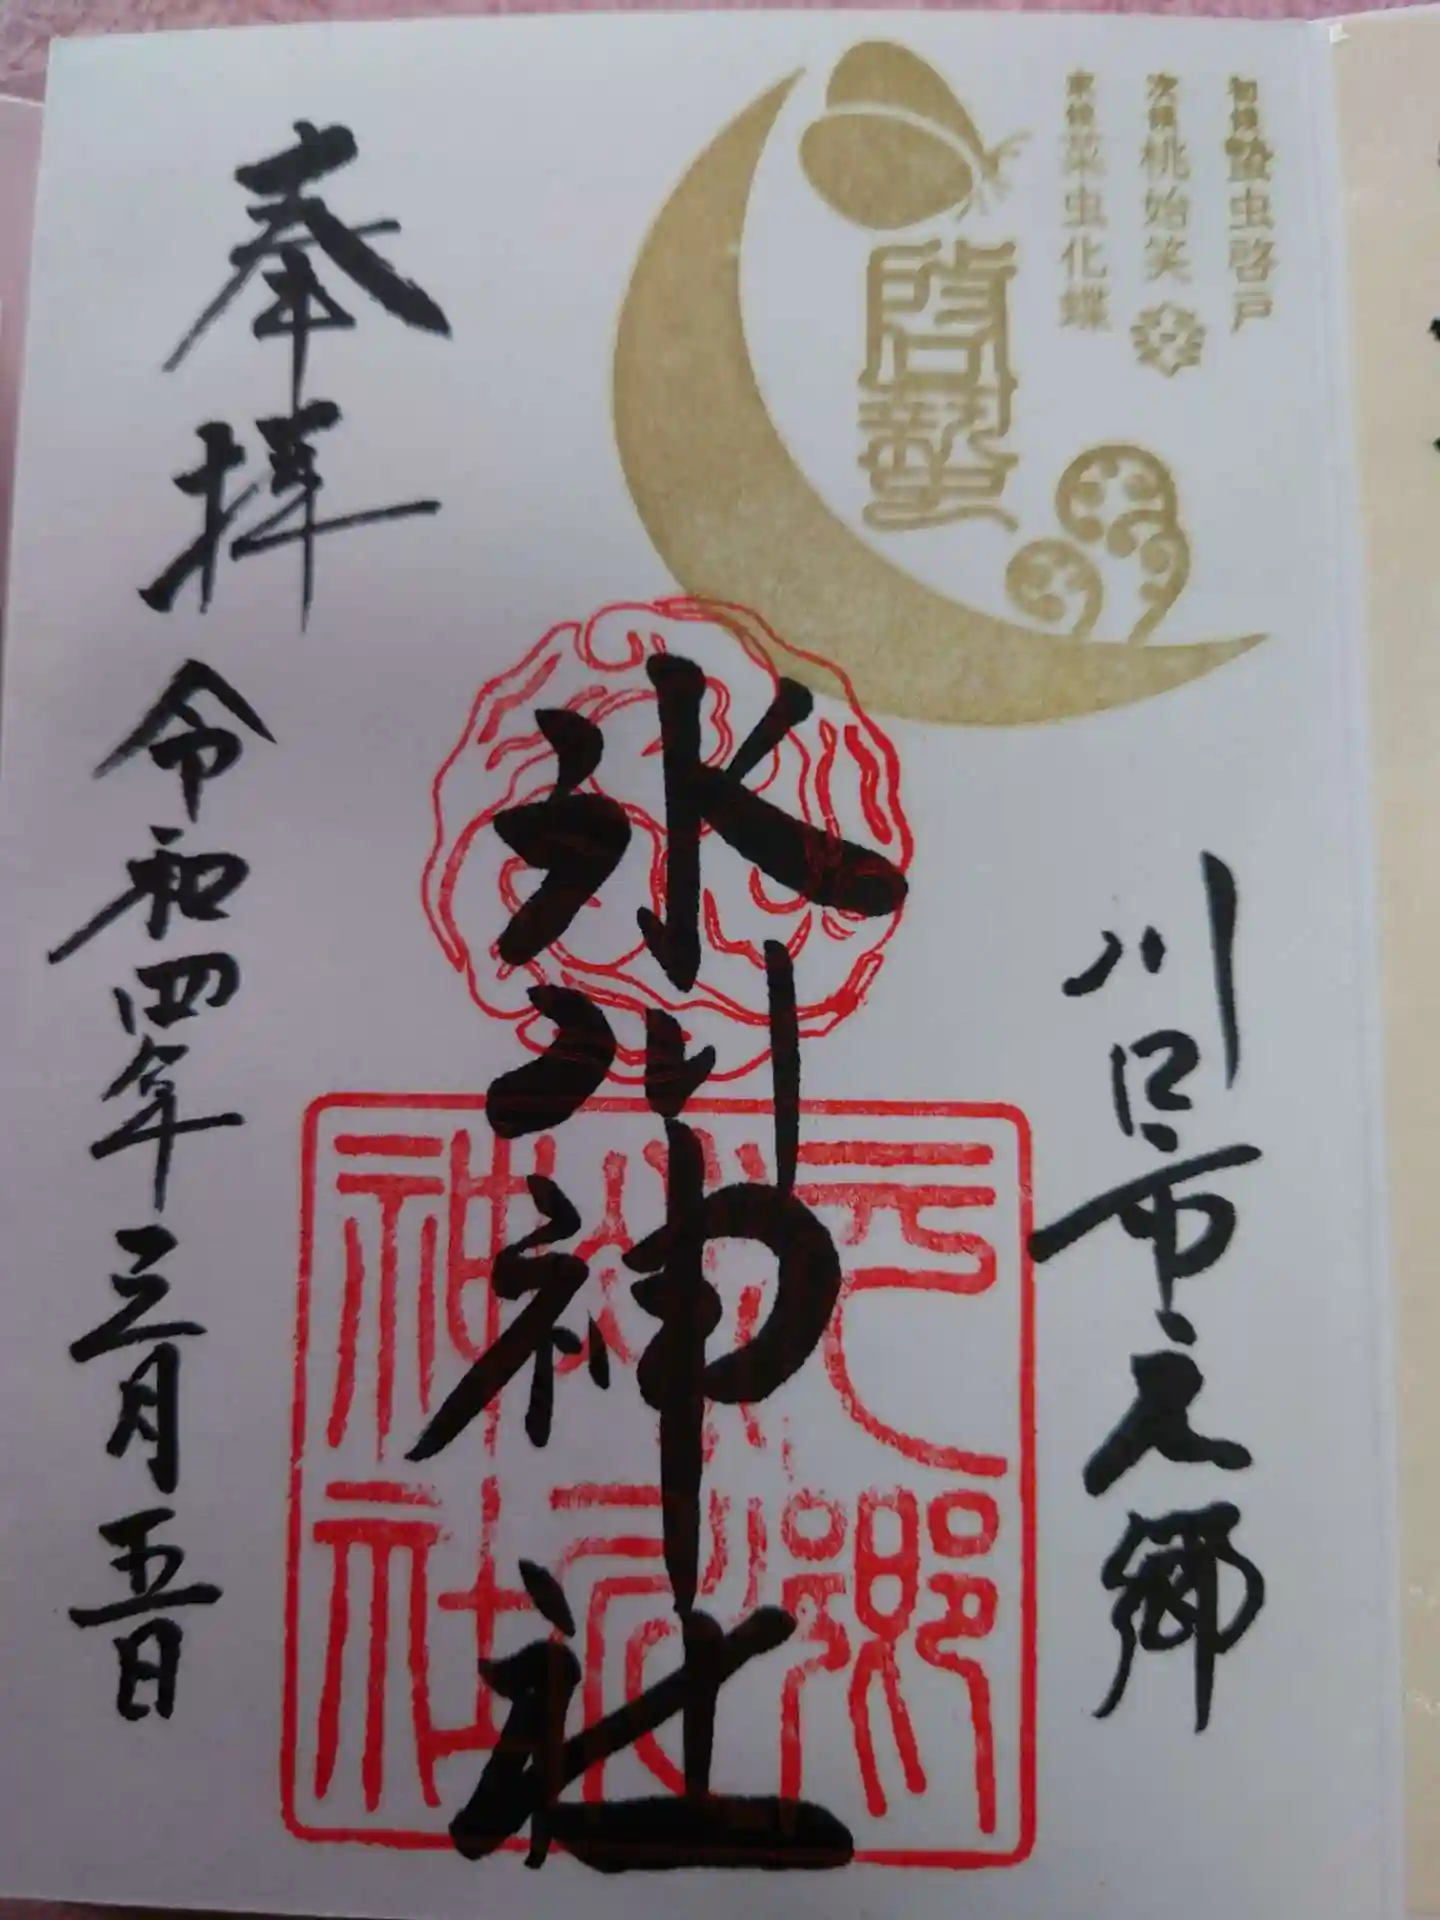 初候 蟄虫啓戸
次候 桃始笑
末候 菜虫化蝶
啓蟄
川口市元郷
氷川神社
元郷
氷川
神社
奉拝
令和四年三月五日